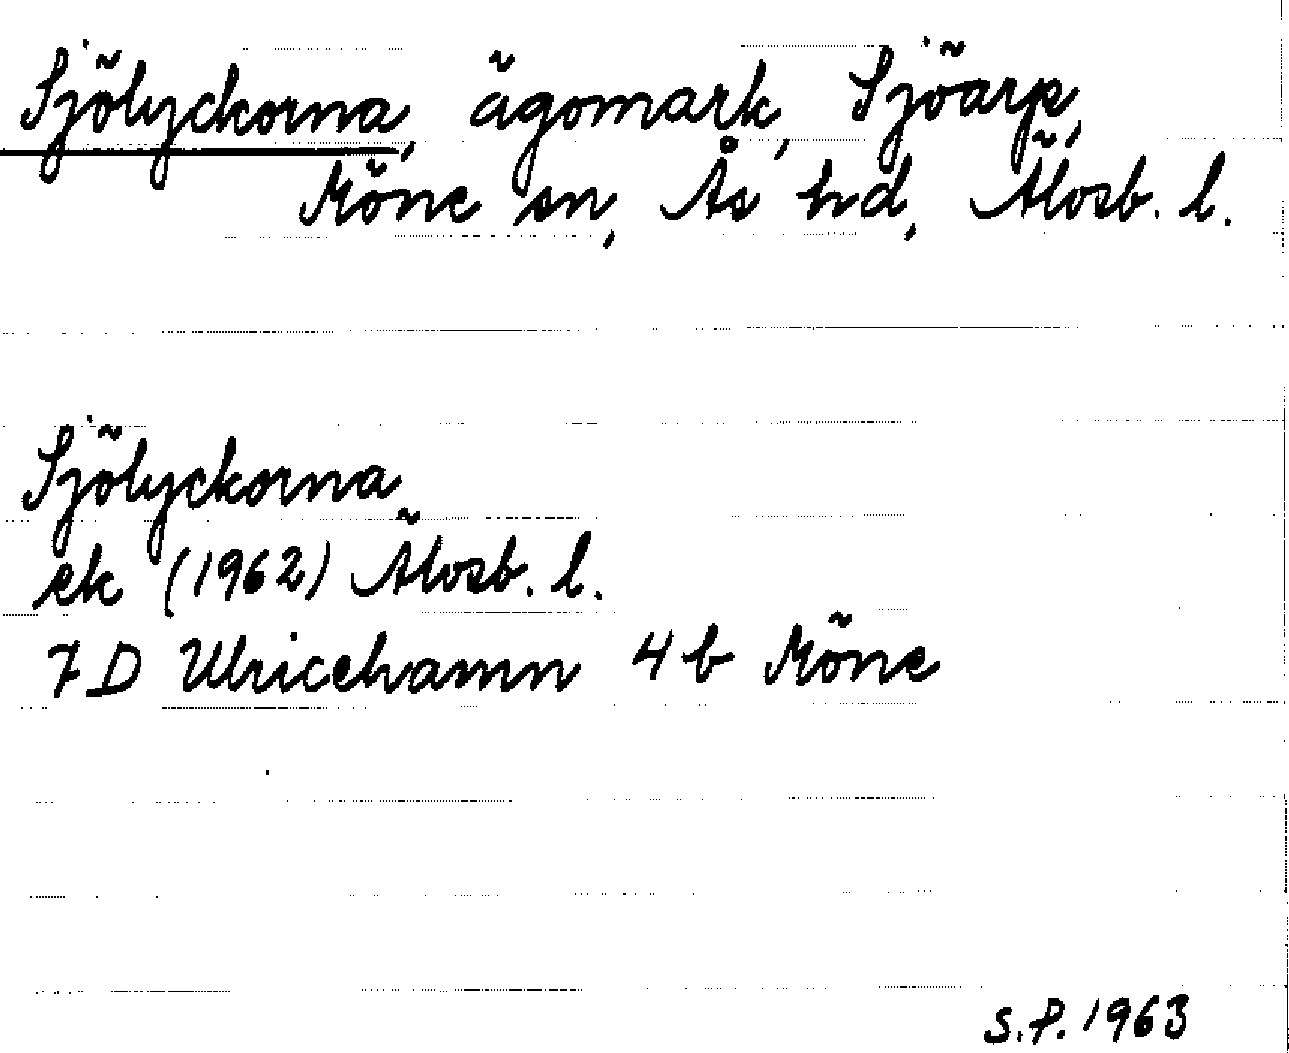 Sjölyckorna, ägomark, Sjöarp,
Möne sn, Ås hd, Älvsb. l.
Sjölyckorna
ek (1962) Älvsb. l.
7 D Ulricehamn 4 b Möne
S.P. 1963